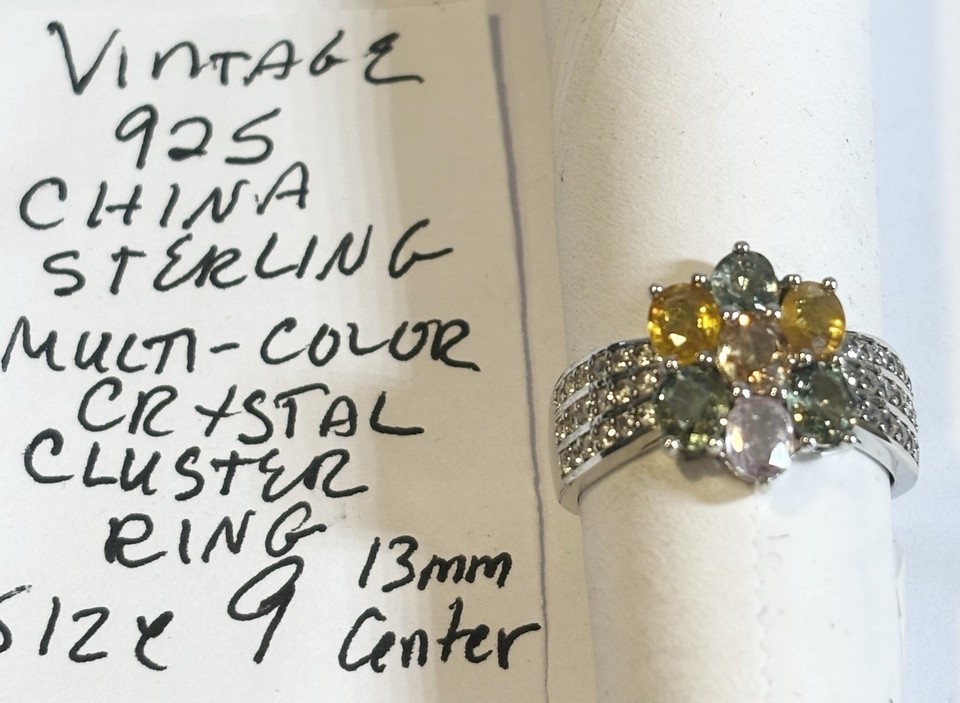 VINTAGE
925
CHINA
STERLING
MULTI-COLOR
CRYSTAL
CLUSTER
RING
Size 9 13mm
Center